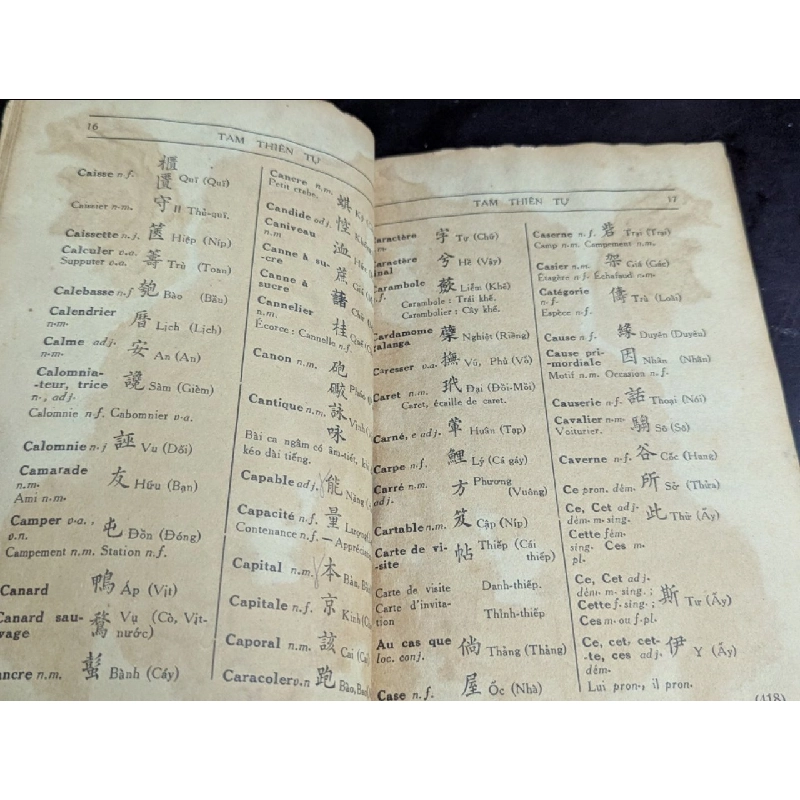 16
TAM THIÊN TỰ
Caisse n.f. 櫃 匱 Quĩ (Quĩ)
守 II Thủ-quĩ.
Caissette n.f. 箧 Hiệp (Níp)
Calculer v.a. 筹 Trù (Toan)
Supputer v.a.
Calebasse n.f 匏 Bào (Bầu)
Calendrier n.m. 曆 Lịch (Lịch)
Calme adj. n.m. 安 An (An)
Calomnia-
-teur, trice 讒 Sàm (Gièm)
n., adj.
Calomnie n.f. Cabomnier v.a.
Calomnie n.f 誣 Vu (Dối)
Camarade n.m. 友 Hữu (Bạn)
Ami n.m.
Camper v.a., v.n. 屯 Đồn (Đóng)
Campement n.m. Station n.f.
Canard 鴨 Áp (Vịt)
Canard sau-
vage 鶩 Vụ (Cò, Vịt-nước)
ancre n.m. Bành (Cáy)
Cancre n.m.
Petit crabe.
Candide adj. 悾
Caniveau n.m. 洫
Canne à su-
-cre 蔗
Canne à
sucre 藷
Cannelier n.m. 桂
Écorce : Cannelle n.f
Canon n.m. 砲
Cantique n.m. 詠 咏
Bài ca ngâm có âm-tiết,
kéo dài tiếng.
Capable adj. 能
Capacité n.f. 量
Contenance n.f.
Capital n.m. 本
Capitale n.f. 京
Caporal n.m. 該 Cai
Caracoler v.n 跑
TAM THIÊN TỰ
17
Caractère n.m. 字 Tự (Chữ)
兮 Hề (Vậy)
Carambole n.f. Liễm (Khế)
Carambole : Trái khế.
Carambolier : Cây khế.
Cardamome
galanga Nghiệt (Riềng)
Caresser v.a. 撫 Vũ, Phủ (Vỗ)
Caret n.m. 玳 Đại (Đồi-Mồi)
Caret, écaille de caret.
Carné, e adj. 葷 Huân (Tạp)
Carpe n.f. 鯉 Lý (Cá gáy)
Carré n.m. adj. 方 Phương (Vuông)
Cartable n.m. 笈 Cập (Níp)
Carte de vi-
-site 帖 Thiếp (Cái thiếp)
Carte de visite Danh-thiếp.
Carte d'invita-
tion Thỉnh-thiếp
Au cas que
loc. conj. 倘 Thảng (Thảng)
Case n.f. 屋 Ốc (Nhà)
Caserne n.f. 砦 Trại (Trại)
Camp n.m. Campement n.m.
Casier n.m. 架 Giá (Gác)
Étagère n.f. Échafaud n.m.
Catégorie n.f. Trù (Loài)
Espèce n.f.
Cause n.f. 緣 Duyên (Duyên)
Cause pri-
-mordiale 因 Nhân (Nhân)
Motif n.m. Occasion n.f.
Causerie n.f. 話 Thoại (Nói)
Cavalier n.m. 騶 Sô (Sô)
Voiturier.
Caverne n.f. 谷 Cốc (Hang)
Ce pron. dém. 所 Sở (Thửa)
Ce, Cet adj.
dém. m. sing. 此 Thử (Ấy)
Cette fém.
sing. Ces m.
pl.
Ce, Cet adj.
dém. m. sing. ;
Cette f. sing. ; 斯 Tư (Ấy)
Ces m. ou f. pl.
Ce, cet, cet-
-te, ces adj. 伊 Y (Ấy)
Lui pron., il pron.
(418)